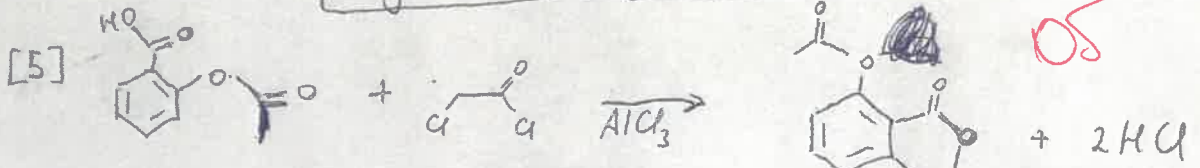 [5] HO O O O + Cl O Cl AlCl₃ O O O O + 2HCl